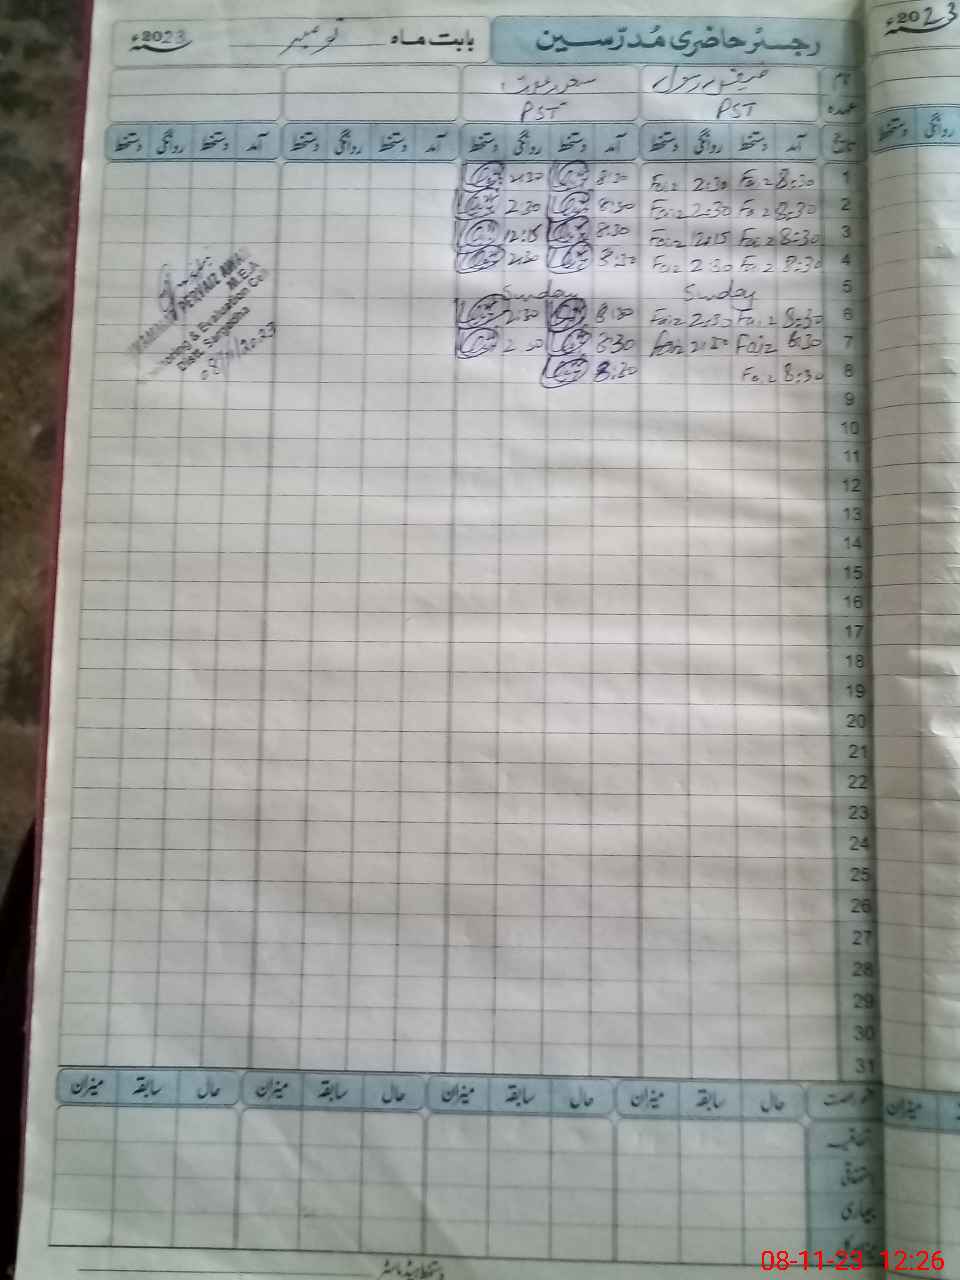 رجسٹر حاضری مُدرّسین بابت ماہ نومبر 2023ء
2023
نام
عہدہ PST PST
تاریخ آمد دستخط روانگی دستخط آمد دستخط روانگی دستخط آمد دستخط روانگی دستخط آمد دستخط روانگی دستخط
روانگی دستخط
1 8:30 Faiz 2:30 Faiz 8:30 2:30
2 8:30 Faiz 2:30 Faiz 8:30 2:30
3 8:30 Faiz 12:15 Faiz 8:30 12:15
4 8:30 Faiz 2:30 Faiz 8:30 2:30
5 Sunday Sunday
6 8:30 Faiz 2:30 Faiz 8:30 2:30
7 8:30 Faiz 2:30 Faiz 8:30 2:30
8 8:30 Faiz 8:30
PERVAIZ
M.E.A
& Evaluation
Distt. Sargodha
08/11/2023
9
10
11
12
13
14
15
16
17
18
19
20
21
22
23
24
25
26
27
28
29
30
31
حال سابقہ میزان حال سابقہ میزان حال سابقہ میزان حال سابقہ میزان
میزان
اتفاقیہ
استحقاقی
بیماری
دستخط ہیڈ ماسٹر
08-11-23 12:26